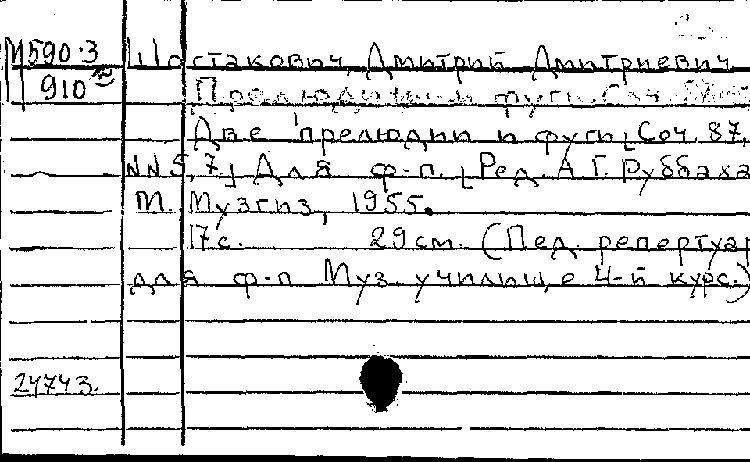 М590.3 Шостакович, Дмитрий Дмитриевич
910
Прелюдии и фуги. Соч.
Две прелюдии и фуги [Соч. 87,
NN 5, 7] Для ф-п. [Ред. А.Г. Руббаха
М. Музгиз, 1955.
17с. 29см. (Пед. репертуар
для ф-п Муз. училище 4-й курс.)
24743.